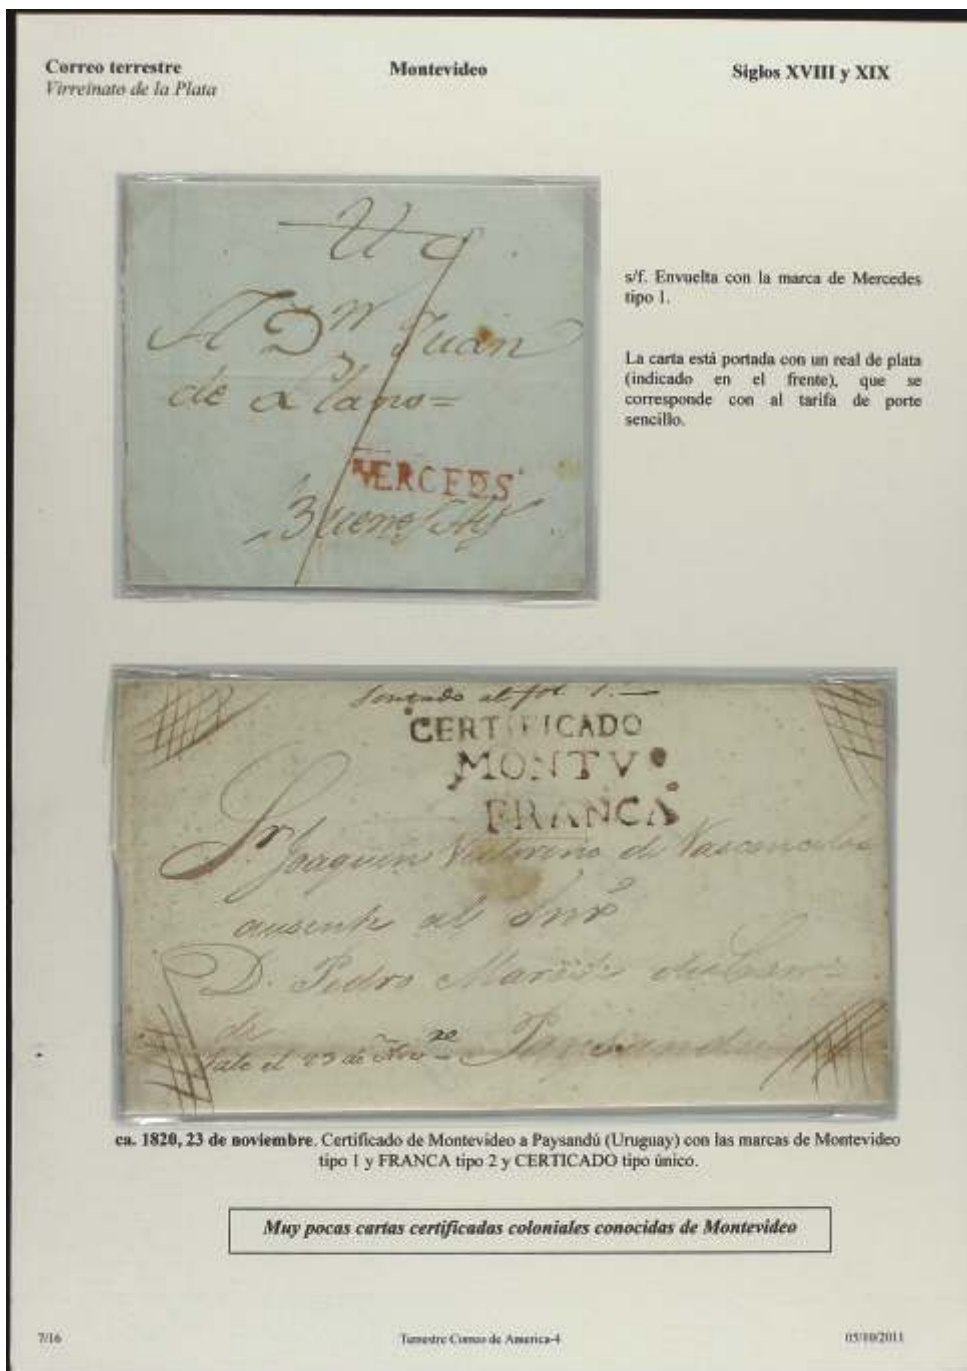 Correo terrestre
Virreinato de la Plata
Montevideo
Siglos XVIII y XIX
A Dn Juan
de Llano=
MERCEDS
Buenos Ays
s/f. Envuelta con la marca de Mercedes
tipo 1.
La carta está portada con un real de plata
(indicado en el frente), que se
corresponde con al tarifa de porte
sencillo.
al fol. 1.
CERTIFICADO
MONTVO
FRANCA
Sr Joaquin Vitorino de Vasconcelos
ausente al Snr
D. Pedro
de
Sale el 23 de Nov re Paysandu
ca. 1820, 23 de noviembre. Certificado de Montevideo a Paysandú (Uruguay) con las marcas de Montevideo
tipo 1 y FRANCA tipo 2 y CERTICADO tipo único.
Muy pocas cartas certificadas coloniales conocidas de Montevideo
7/16
Terrestre Correo de America-4
05/10/2011